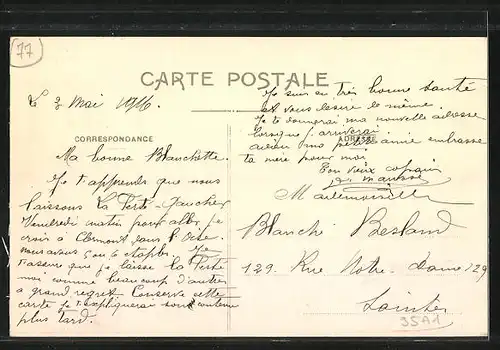 77
CARTE POSTALE
Le 3 Mai 1916.
CORRESPONDANCE
Ma bonne Blanchette.
Je t'apprends que nous
laissons La Ferté-Gaucher
Vendredi matin pour aller, je
crois à Clermont dans l'Oise.
nous avons 5 ou 6 étapes. Je
t'assure que je laisse La Ferté
moi comme beaucoup d'autres
a grand regret. Conserve cette
carte je t'expliquerai son contenu
plus tard.
Je suis en très bonne santé
et vous désire le même.
Je te donnerai ma nouvelle adresse
lorsque j'arriverai
ADRESSE
adieu ma petite amie embrasse
ta mère pour moi
Ton vieux copain
Mademoiselle
Blanche Besland
129. Rue Notre-Dame 129
Saintes
3591